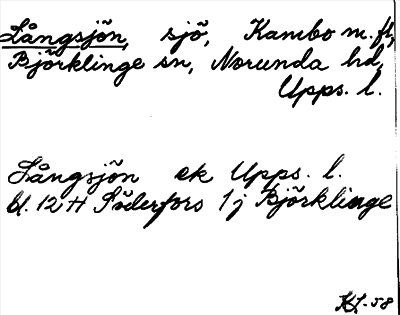 Långsjön, sjö, Kambo m. fl,
Björklinge sn, Norunda hd,
Upps. l.
Långsjön ek Upps. l.
bl. 12 H Söderfors 1j Björklinge
KL-58